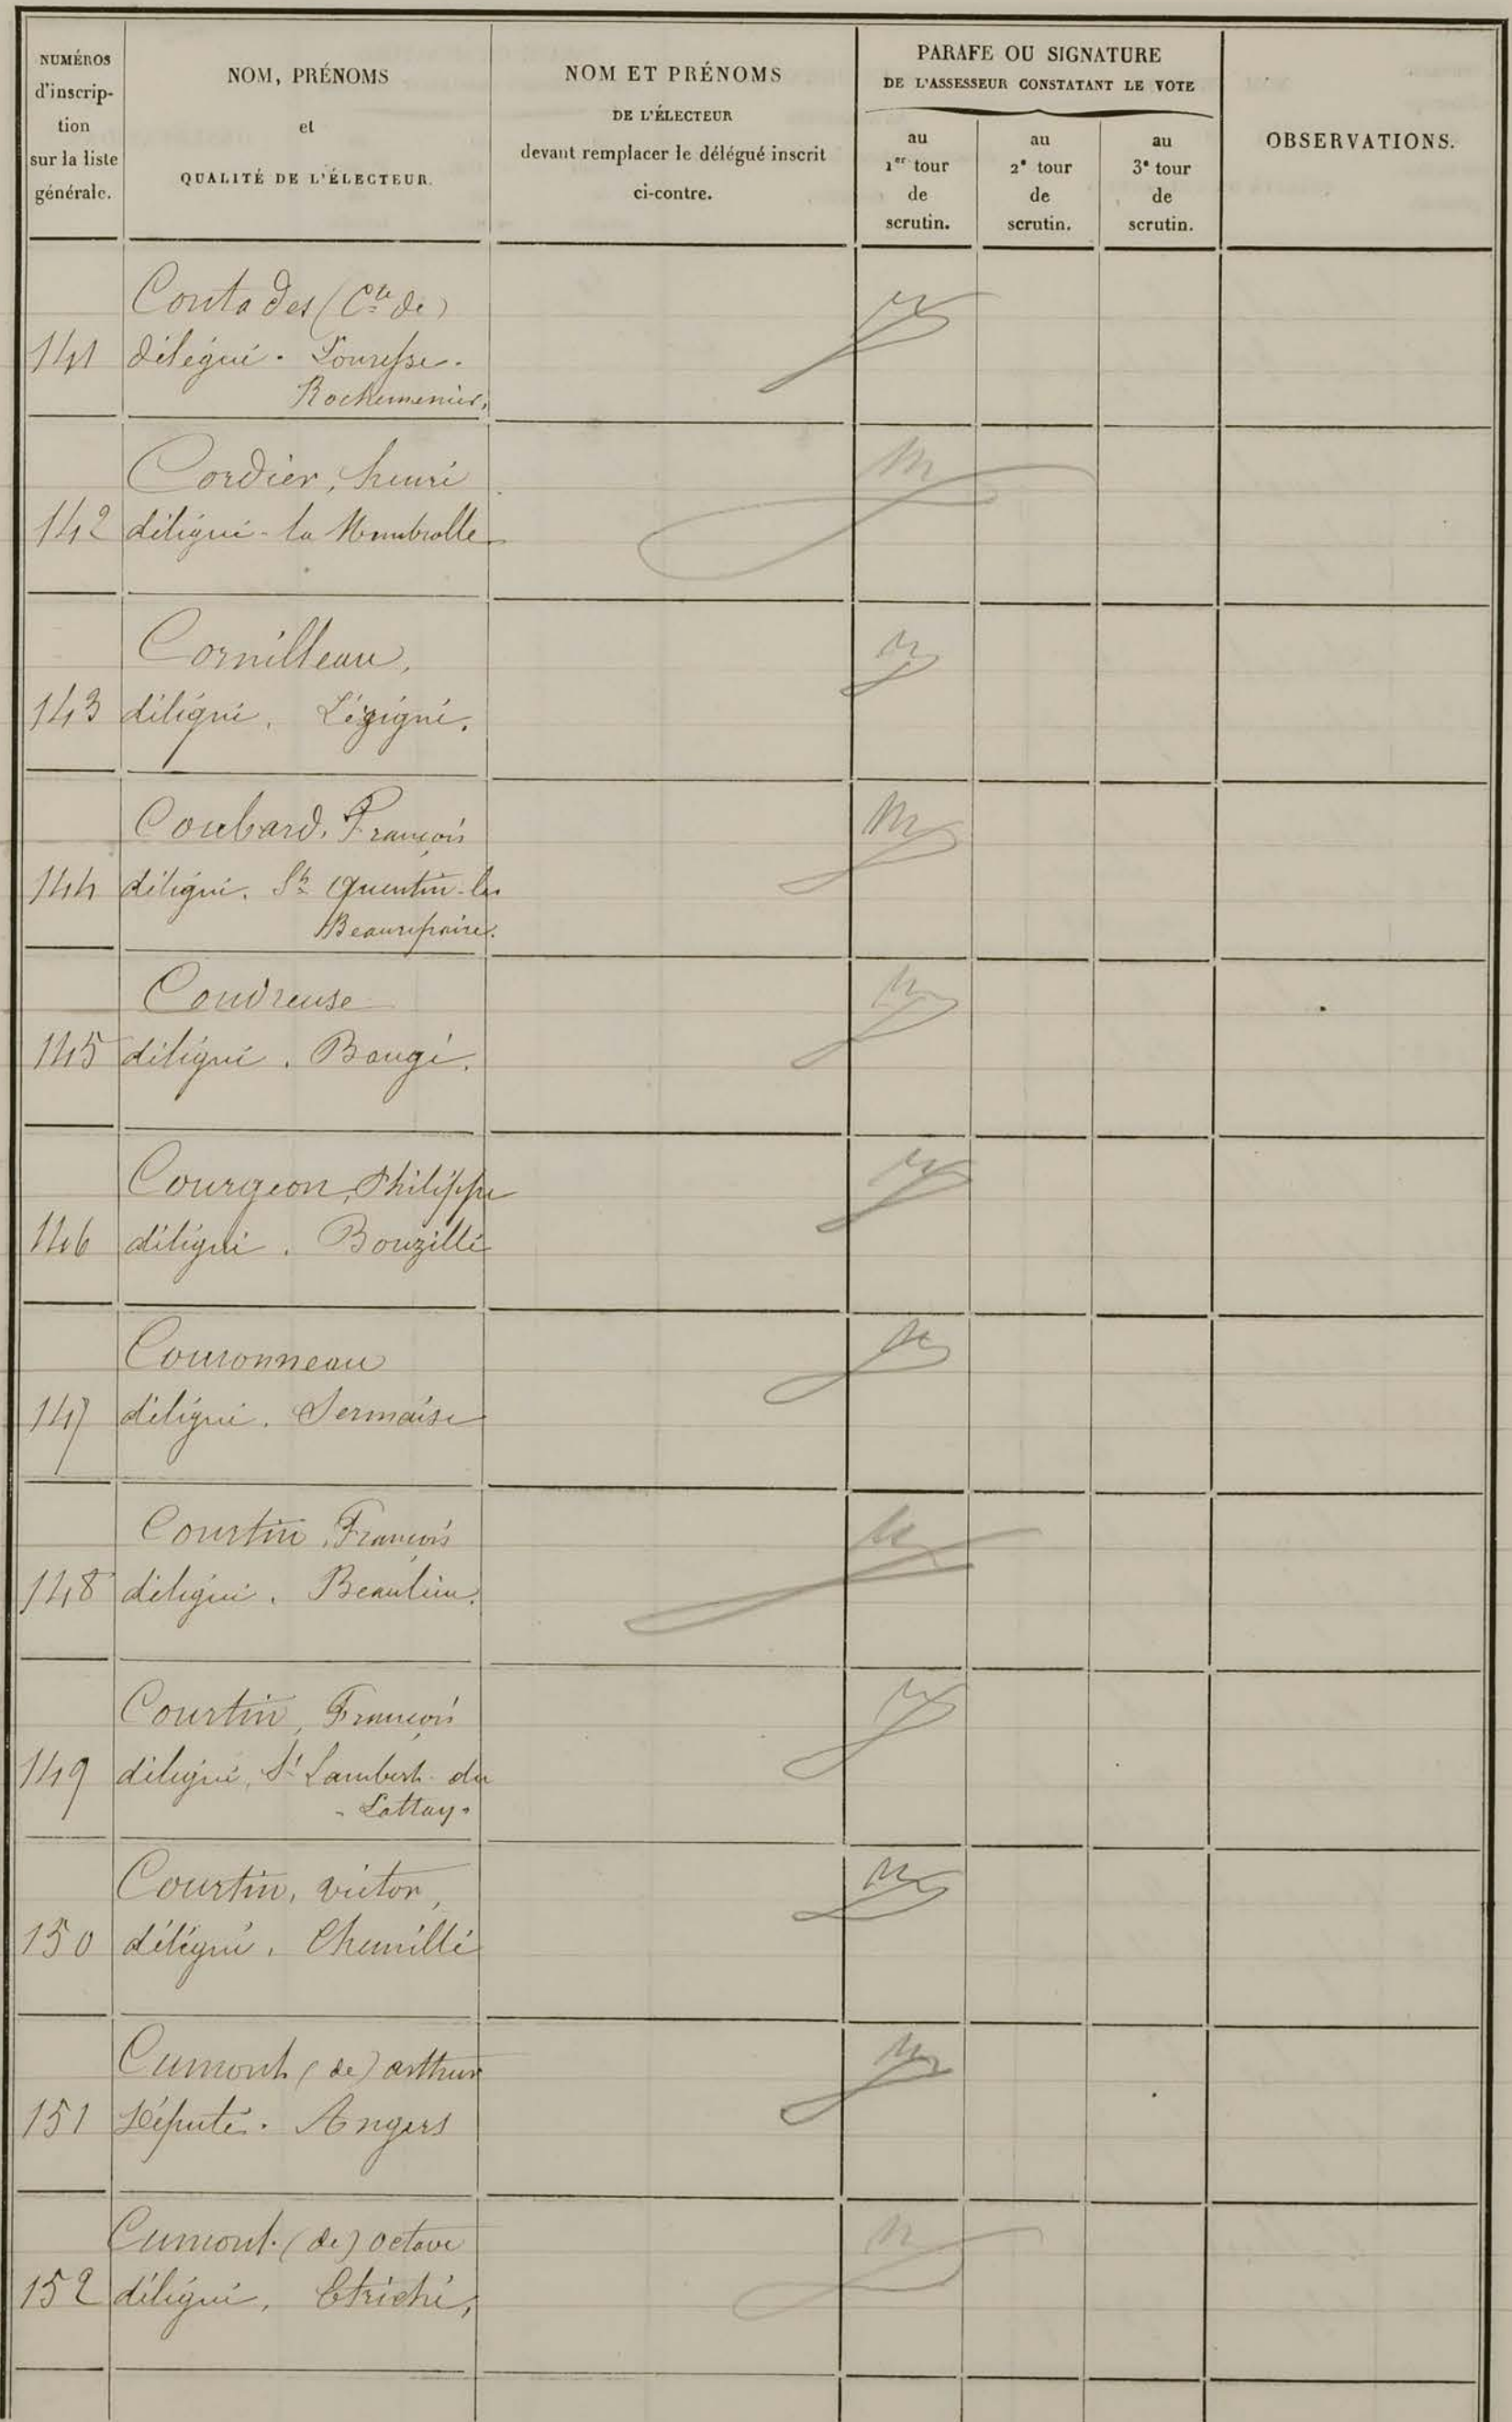 NUMÉROS
d'inscrip-
tion
sur la liste
générale.
NOM, PRÉNOMS
et
QUALITÉ DE L'ÉLECTEUR.
NOM ET PRÉNOMS
DE L'ÉLECTEUR
devant remplacer le délégué inscrit
ci-contre.
PARAFE OU SIGNATURE
DE L'ASSESSEUR CONSTATANT LE VOTE
au
1er tour
de
scrutin.
au
2e tour
de
scrutin.
au
3e tour
de
scrutin.
OBSERVATIONS.
Contades (Cte de)
141 délégué. Louresse-
Rochemenier.
Cordier, henri
142 délégué - la Membrolle
Cornilleau,
143 délégué, Lézigné.
Coubard, François
144 délégué. St Quentin-les
Beaurepaire.
Coudreuse
145 délégué. Baugé.
Courgeon, Philippe
146 délégué. Bouzillé
Couronneau
147 délégué. Sermaise
Courtin, François
148 délégué. Beaulieu.
Courtin, François
149 délégué, St Lambert-du
-Lattay.
Courtin, victor,
150 délégué. Chemillé
Cumont (de) arthur
151 Député. Angers
Cumont. (de) octave
152 délégué, Etriché,